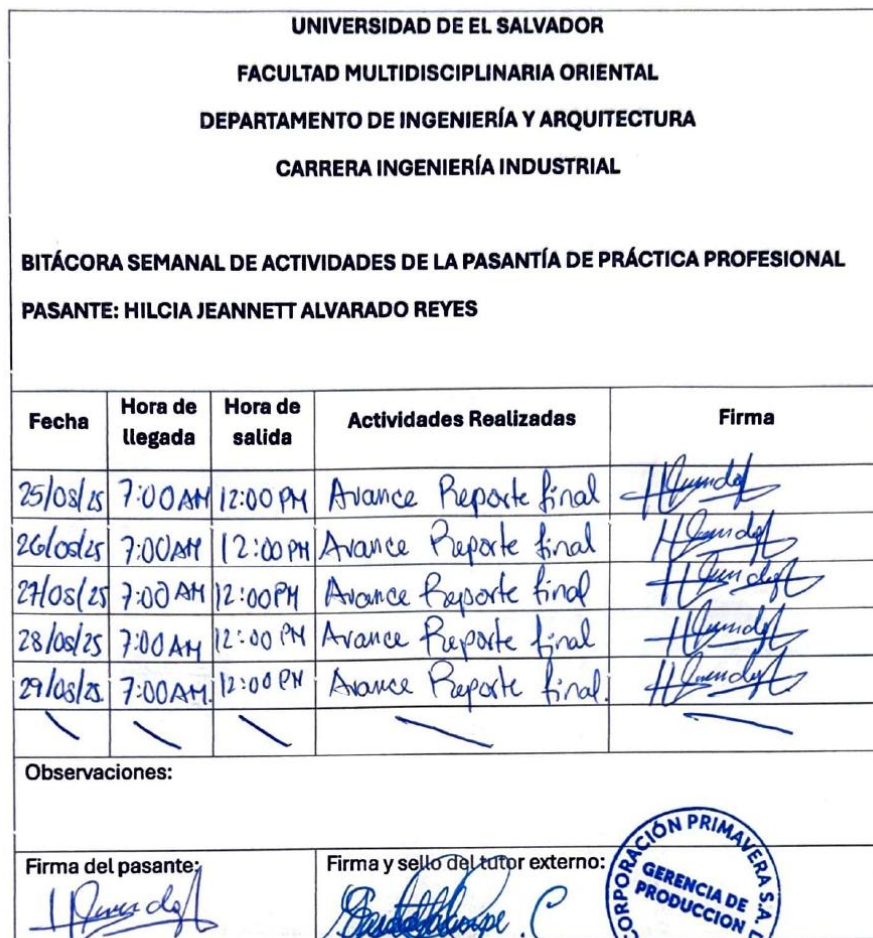 UNIVERSIDAD DE EL SALVADOR
FACULTAD MULTIDISCIPLINARIA ORIENTAL
DEPARTAMENTO DE INGENIERÍA Y ARQUITECTURA
CARRERA INGENIERÍA INDUSTRIAL
BITÁCORA SEMANAL DE ACTIVIDADES DE LA PASANTÍA DE PRÁCTICA PROFESIONAL
PASANTE: HILCIA JEANNETT ALVARADO REYES
Fecha Hora de llegada Hora de salida Actividades Realizadas Firma
25/08/25 7:00 AM 12:00 PM Avance Reporte final
26/08/25 7:00 AM 12:00 PM Avance Reporte final
27/08/25 7:00 AM 12:00 PM Avance Reporte final
28/08/25 7:00 AM 12:00 PM Avance Reporte final
29/08/25. 7:00 AM. 12:00 PM Avance Reporte final.
Observaciones:
Firma del pasante: Firma y sello del tutor externo:
CORPORACIÓN PRIMAVERA S.A.
GERENCIA DE
PRODUCCION